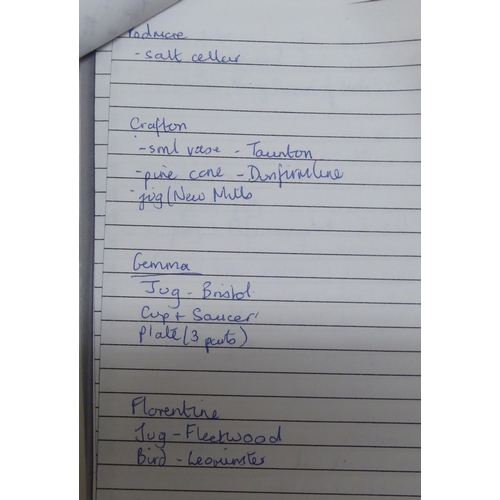 Podmore
- salt cellar
Crafton
- sml vase - Taunton
- pine cone - Dunfirmline
- jug (New Mills
Gemma
Jug - Bristol
Cup + Saucer
Plate (3 parts)
Florentine
Jug - Fleetwood
Bird - Leominster